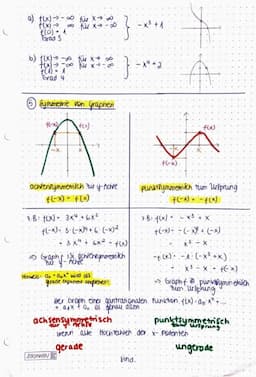 a) f(x) → -∞ für x → ∞
f(x) → ∞ für x → -∞
f(0) = 1
Grad 3
} -x³+1
b) f(x) → -∞ für x → ∞
f(x) → -∞ für x → -∞
f(1) = 1
Grad 4
} -x⁴+2
⑤ Symmetrie von Graphen
f(-x) f(x)
-x x
achsensymmetrisch zur y-Achse
f(-x) = f(x)
f(x)
-x x
f(-x)
punktsymmetrisch zum Ursprung
f(-x) = -f(x)
z.B.: f(x) = 3x⁴ + 6x²
f(-x) = 3·(-x)⁴ + 6·(-x)²
= 3x⁴ + 6x² = f(x)
⇒ Graph f ist achsensymmetrisch
zur y-Achse
z.B.: f(x) = -x³ + x
f(-x) = -(-x)³ + (-x)
= x³ - x
-f(x) = -1·(-x³+x)
= x³ - x = f(-x)
⇒ Graph f punktsymmetrisch
zum Ursprung
Hinweis:
Der Graph einer ganzrationalen Funktion f(x) =
ist genau dann
achsensymmetrisch
zur y-Achse
punktsymmetrisch
zum Ursprung
wenn alle Hochzahlen der x-Potenzen
gerade
ungerade
sind.